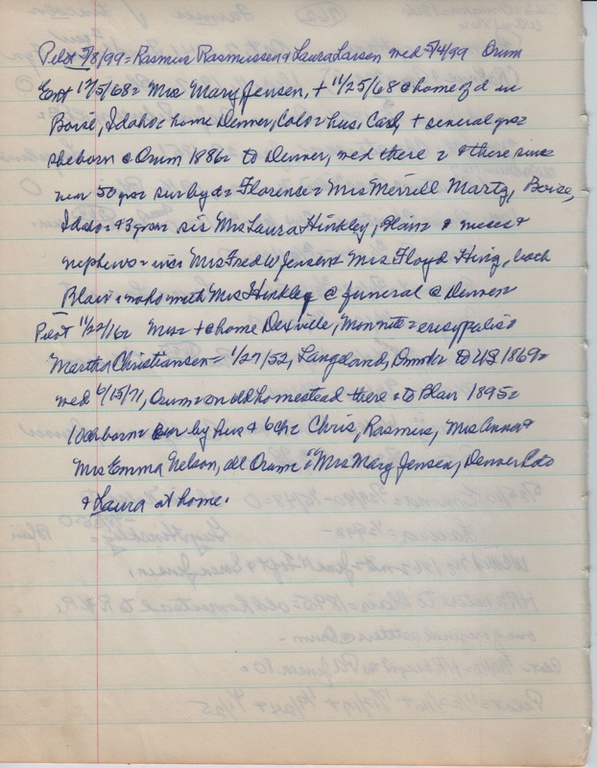 Pilot 5/8/99 = Rasmus Rasmussen & Laura Larsen wed 5/4/99 Orum
Ent 12/5/68 = Mrs Mary Jensen, + 11/25/68 @ home of d in
Boise, Idaho = home Denver, Colo = hus, Carl, + several yrs
she born @ Orum 1886 = to Denver, wed there = & there since
near 50 yrs = sur by d = Florence = Mrs Merrill Marty, Boise,
Idaho = & 3 grcn = sis Mrs Laura Hinkley, Blair & nieces &
nephews = Mrs Fred W Jensen & Mrs Floyd King, both
Blair = with Mrs Hinkley @ funeral @ Denver
Pilot 11/22/16 = Mrs = + @ home = erysypalis =
Martha Christiansen = 1/27/52, Langeland, Dnmk = to US 1869 =
wed 4/15/71, Orum = on old homestead there = to Blair 1895 =
10 ch born = sur by hus & 6 ch = Chris, Rasmus, Mrs Anna &
Mrs Emma Nelson, all Orum = Mrs Mary Jensen, Denver Colo
& Laura at home.